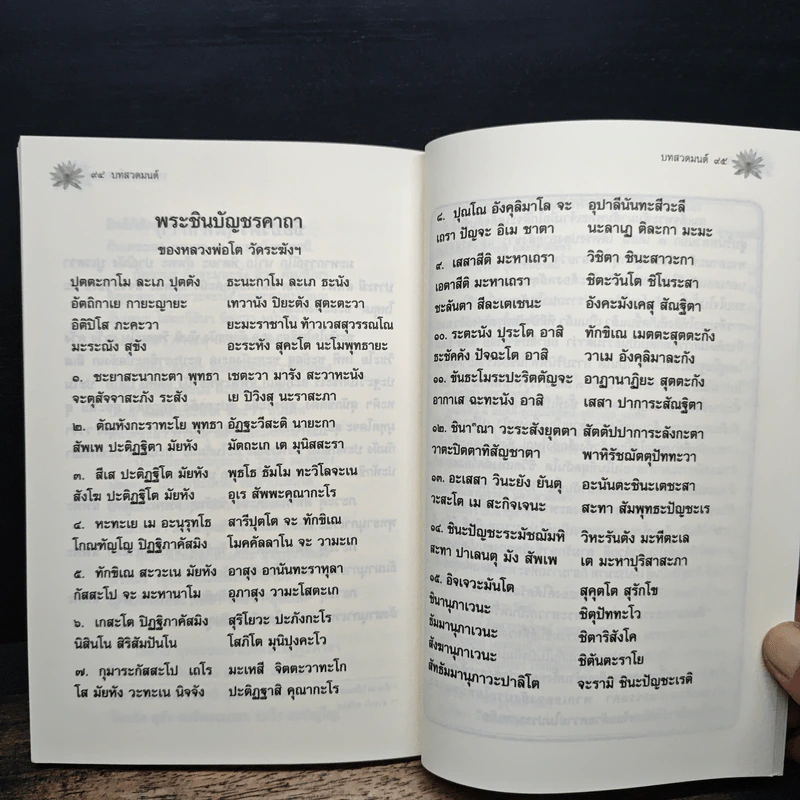 ๙๔ บทสวดมนต์
พระชินบัญชรคาถา
ของหลวงพ่อโต วัดระฆังฯ
ปุตตะกาโม ละเภ ปุตตัง ธะนะกาโม ละเภ ธะนัง
อัตถิกาเย กายะญายะ เทวานัง ปิยะตัง สุตะตะวา
อิติปิโส ภะคะวา ยะมะราชาโน ท้าวเวสสุวรรณโณ
มะระณัง สุขัง อะระหัง สุคะโต นะโมพุทธายะ
๑. ชะยาสะนากะตา พุทธา เชตะวา มารัง สะวาหะนัง
จะตุสัจจาสะภัง ระสัง เย ปิวิงสุ นะราสะภา
๒. ตัณหังกะราทะโย พุทธา อัฏฐะวีสะติ นายะกา
สัพเพ ปะติฏฐิตา มัยหัง มัตถะเก เต มุนิสสะรา
๓. สีเส ปะติฏฐิโต มัยหัง พุทโธ ธัมโม ทะวิโลจะเน
สังโฆ ปะติฏฐิโต มัยหัง อุเร สัพพะคุณากะโร
๔. หะทะเย เม อะนุรุทโธ สารีปุตโต จะ ทักขิเณ
โกณฑัญโญ ปิฏฐิภาคัสมิง โมคคัลลาโน จะ วามะเก
๕. ทักขิเณ สะวะเน มัยหัง อาสุง อานันทะราหุลา
กัสสะโป จะ มะหานามะ อุภาสุง วามะโสตะเก
๖. เกสะโต ปิฏฐิภาคัสมิง สุริโยวะ ปะภังกะโร
นิสินโน สิริสัมปันโน โสภิโต มุนิปุงคะโว
๗. กุมาระกัสสะโป เถโร มะเหสี จิตตะวาทะโก
โส มัยหัง วะทะเน นิจจัง ปะติฏฐาสิ คุณากะโร
บทสวดมนต์ ๙๕
๘. ปุณโณ อังคุลิมาโล จะ อุปาลีนันทะสีวะลี
เถรา ปัญจะ อิเม ชาตา นะลาเฏ ติละกา มะมะ
๙. เสสาสีติ มะหาเถรา วิชิตา ชินะสาวะกา
เอตาสีติ มะหาเถรา ชิตะวันโต ชิโนระสา
ชะลันตา สีละเตเชนะ อังคะมังเคสุ สัณฐิตา
๑๐. ระตะนัง ปุระโต อาสิ ทักขิเณ เมตตะสุตตะกัง
ธะชัคคัง ปัจฉะโต อาสิ วาเม อังคุลิมาละกัง
๑๑. ขันธะโมระปะริตตัญจะ อาฏานาฏิยะ สุตตะกัง
อากาเส ฉะทะนัง อาสิ เสสา ปาการะสัณฐิตา
๑๒. ชินา ณา วะระสังยุตตา สัตตัปปาการะลังกะตา
วาตะปิตตาทิสัญชาตา พาหิรัชฌัตตุปัททะวา
๑๓. อะเสสา วินะยัง ยันตุ อะนันตะชินะเตชะสา
วะสะโต เม สะกิจเจนะ สะทา สัมพุทธะปัญชะเร
๑๔. ชินะปัญชะระมัชฌัมหิ วิหะรันตัง มะหีตะเล
สะทา ปาเลนตุ มัง สัพเพ เต มะหาปุริสาสะภา
๑๕. อิจเจวะมันโต สุคุตโต สุรักโข
ชินานุภาเวนะ ชิตุปัททะโว
ธัมมานุภาเวนะ ชิตาริสังโค
สังฆานุภาเวนะ ชิตันตะราโย
สัทธัมมานุภาวะปาลิโต จะรามิ ชินะปัญชะเรติ